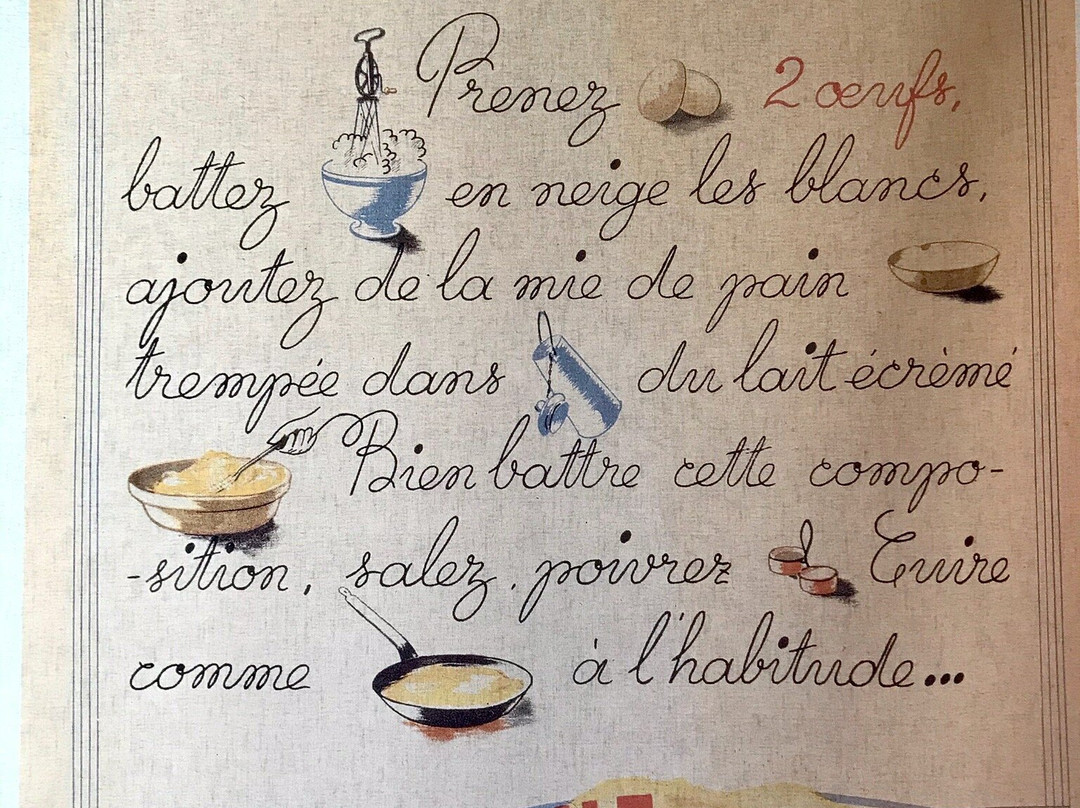 Prenez 2 œufs,
battez en neige les blancs,
ajoutez de la mie de pain
trempée dans du lait écrèmé
Bien battre cette compo-
-sition, salez, poivrez Cuire
comme à l'habitude...